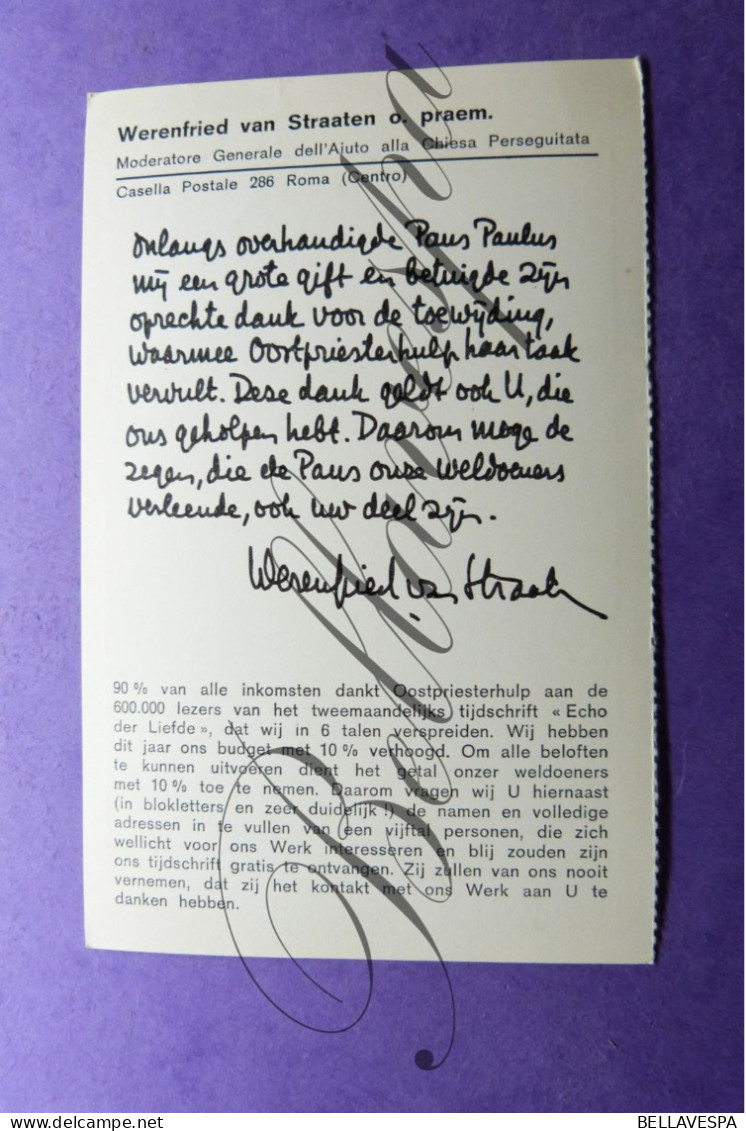 Werenfried van Straaten o. praem.
Moderatore Generale dell'Ajuto alla Chiesa Perseguitata
Casella Postale 286 Roma (Centro)
Onlangs overhandigde Paus Paulus
mij een grote gift en betuigde zijn
oprechte dank voor de toewijding,
waarmee Oostpriesterhulp haar taak
vervult. Deze dank geldt ook U, die
ons geholpen hebt. Daarom moge de
zegen, die de Paus onze weldoeners
verleende, ook uw deel zijn.
Werenfried van Straaten
90 % van alle inkomsten dankt Oostpriesterhulp aan de
600.000 lezers van het tweemaandelijks tijdschrift « Echo
der Liefde », dat wij in 6 talen verspreiden. Wij hebben
dit jaar ons budget met 10 % verhoogd. Om alle beloften
te kunnen uitvoeren dient het getal onzer weldoeners
met 10 % toe te nemen. Daarom vragen wij U hiernaast
(in blokletters en zeer duidelijk !) de namen en volledige
adressen in te vullen van een vijftal personen, die zich
wellicht voor ons Werk interesseren en blij zouden zijn
ons tijdschrift gratis te ontvangen. Zij zullen van ons nooit
vernemen, dat zij het kontakt met ons Werk aan U te
danken hebben.
Bellavespa
BELLAVESPA